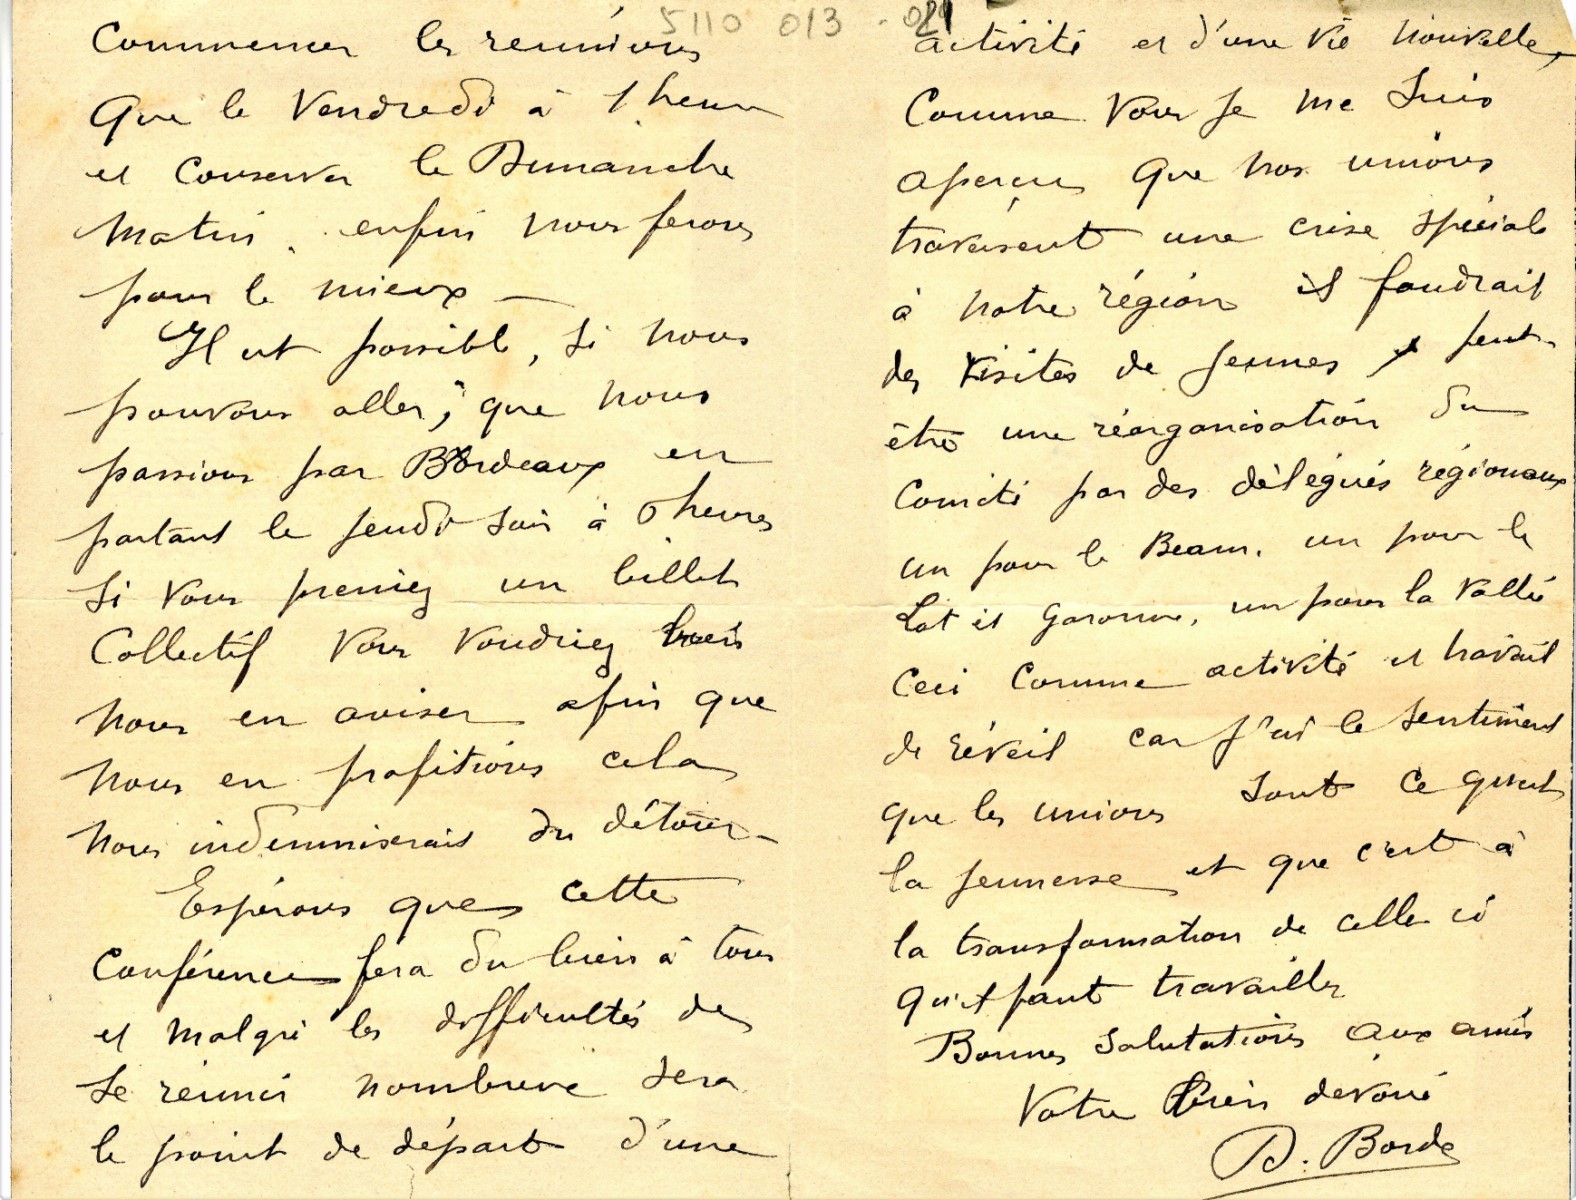 5110 013 - 021
Commencer les réunions
que le Vendredi à 1 heure
et conserver le Dimanche
matin. enfin nous ferons
pour le mieux —
Il est possible, si nous
pouvons aller, que nous
passions par Bordeaux en
partant le jeudi soir à 6 heures
si vous preniez un billet
Collectif vous voudriez bien
nous en aviser afin que
nous en profitions cela
nous indemniserait du détour —
Espérons que cette
Conférence fera du bien à tous
et malgré les difficultés de
se réunir nombreux sera
le point de départ d'une
activité et d'une vie nouvelle,
Comme vous je me suis
aperçu que nos unions
traversent une crise spéciale
à notre région il faudrait
des visites de jeunes, peut-
être une réorganisation du
Comité par des délégués régionaux
un pour le Bearn, un pour le
Lot et Garonne, un pour la Vallée
Ceci comme activité et travail
de réveil car j'ai le sentiment
que les unions sont ce qu'est
la jeunesse et que c'est à
la transformation de celle ci
qu'il faut travailler
Bonnes salutations aux amis
Votre bien devoué
D. Borde